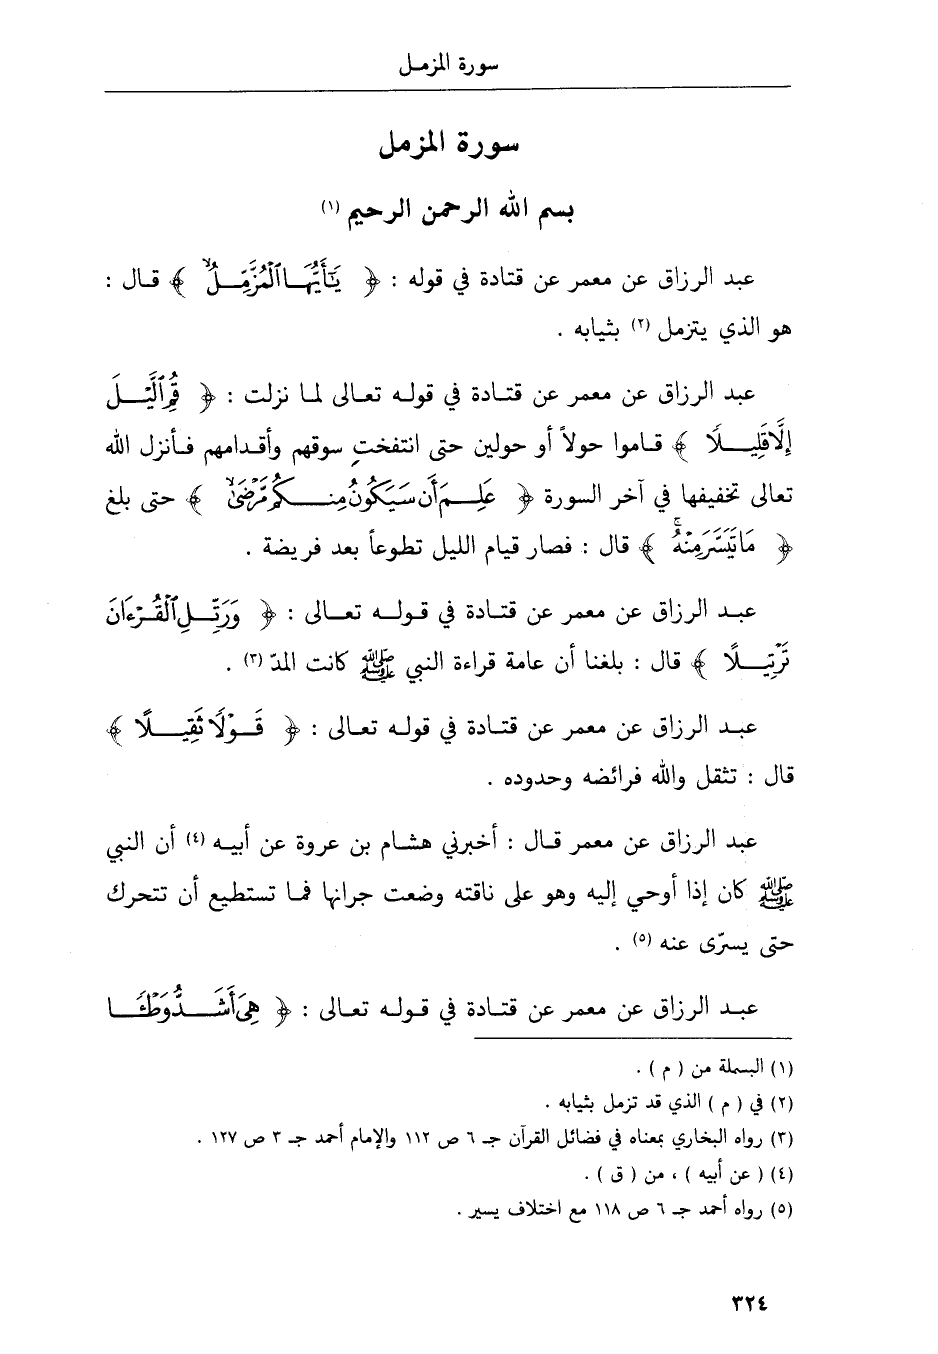 سورة المزمل
سورة المزمل
بسم الله الرحمن الرحيم (١)
عبد الرزاق عن معمر عن قتادة في قوله : ﴿ يَٰٓأَيُّهَا ٱلْمُزَّمِّلُ ﴾ قال :
هو الذي يتزمل (٢) بثيابه .
عبد الرزاق عن معمر عن قتادة في قوله تعالى لما نزلت : ﴿ قُمِ ٱلَّيْلَ
إِلَّا قَلِيلًا ﴾ قاموا حولاً أو حولين حتى انتفخت سوقهم وأقدامهم فأنزل الله
تعالى تخفيفها في آخر السورة ﴿ عَلِمَ أَن سَيَكُونُ مِنكُم مَّرْضَىٰ ﴾ حتى بلغ
﴿ مَا تَيَسَّرَ مِنْهُ ﴾ قال : فصار قيام الليل تطوعاً بعد فريضة .
عبد الرزاق عن معمر عن قتادة في قوله تعالى : ﴿ وَرَتِّلِ ٱلْقُرْءَانَ
تَرْتِيلًا ﴾ قال : بلغنا أن عامة قراءة النبي ﷺ كانت المدّ (٣) .
عبد الرزاق عن معمر عن قتادة في قوله تعالى : ﴿ قَوْلًا ثَقِيلًا ﴾
قال : تثقل والله فرائضه وحدوده .
عبد الرزاق عن معمر قال : أخبرني هشام بن عروة عن أبيه (٤) أن النبي
ﷺ كان إذا أوحي إليه وهو على ناقته وضعت جرانها فما تستطيع أن تتحرك
حتى يسرّى عنه (٥) .
عبد الرزاق عن معمر عن قتادة في قوله تعالى : ﴿ هِىَ أَشَدُّ وَطْـًٔا
(١) البسملة من ( م ) .
(٢) في ( م ) الذي قد تزمل بثيابه .
(٣) رواه البخاري بمعناه في فضائل القرآن جـ ٦ ص ١١٢ والإمام أحمد جـ ٣ ص ١٢٧ .
(٤) ( عن أبيه ) ، من ( ق ) .
(٥) رواه أحمد جـ ٦ ص ١١٨ مع اختلاف يسير .
٣٢٤